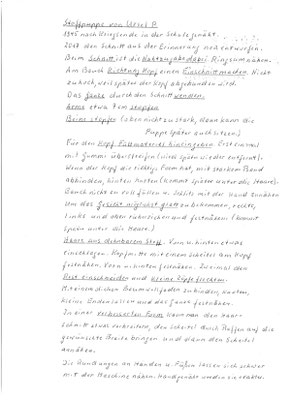 Stoffpuppe von Ursel P.
1945 nach Kriegsende in der Schule genäht.
2017 den Schnitt aus der Erinnerung neu entworfen.
Beim Schnitt ist die Nahtzugabe dabei. Ringsum nähen.
Am Bauch Richtung Kopf einen Einschnitt machen. Nicht
zu hoch, weil später der Kopf abgebunden wird.
Das Ganze durch den Schnitt wenden.
Arme etwa 7cm stopfen
Beine stopfen (oben nicht zu stark, denn dann kann die
Puppe später auch sitzen.)
Für den Kopf Füllmaterial hineingeben. Erst einmal
mit Gummi überstreifen (wird später wieder entfernt).
Wenn der Kopf die richtige Form hat, mit starkem Band
abbinden, hinten Knoten (kommt später unter die Haare).
Bauch nicht zu voll füllen u. Schlitz mit der Hand zunähen
Um das Gesicht möglichst glatt zu bekommen, rechts,
links und oben rüberziehen und festnähen (kommt
später unter die Haare.)
Haare aus dehnbarem Stoff. Vorn u. hinten etwas
einschlagen. Kopfmitte mit einem Scheitel am Kopf
festnähen. Vorn u. hinten festnähen. Zweimal den
Rest einschneiden und kleine Zöpfe flechten.
Mit einem dicken Baumwollfaden zubinden, knoten,
kleine Enden lassen und das Ganze festnähen.
In einer verbesserten Form kann man den Haar-
Schnitt etwas verbreitern, den Scheitel durch Raffen auf die
gewünschte Breite bringen und dann den Scheitel
annähen.
Die Rundungen an Händen u. Füßen lassen sich schwer
mit der Maschine nähen. Handgenäht werden sie exakter.